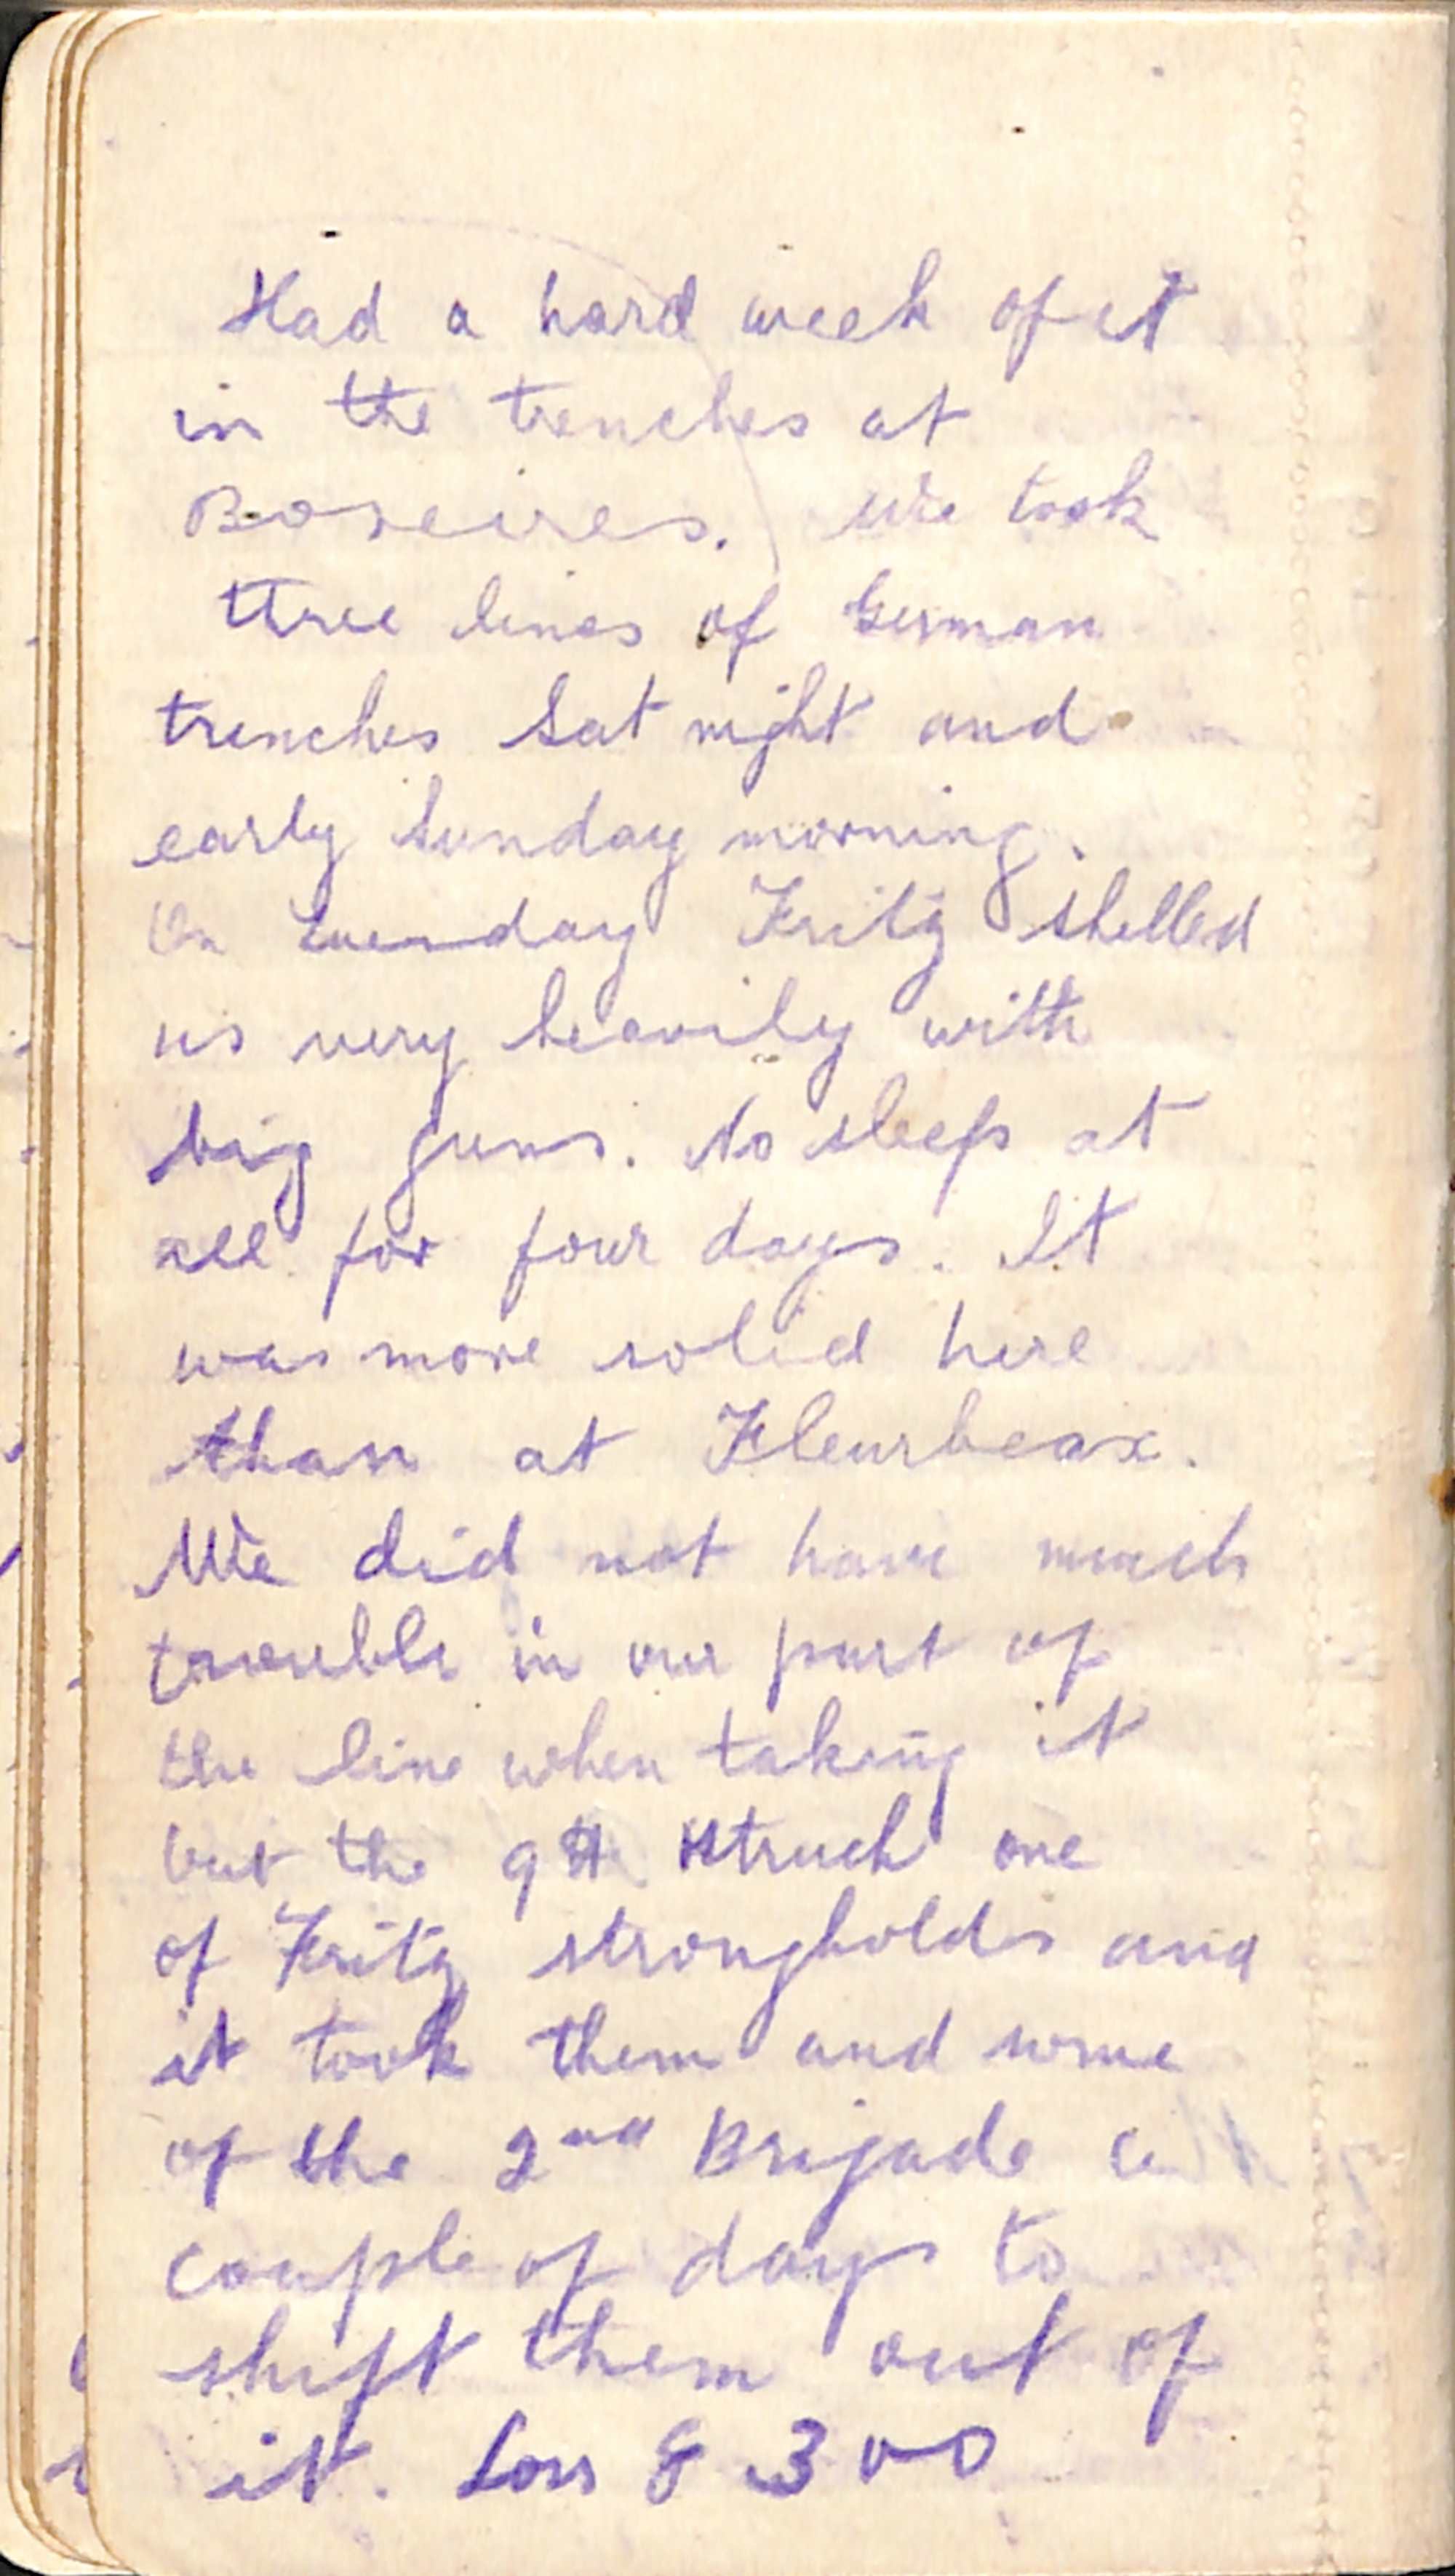 Had a hard week of it
in the trenches at
Boseires. We took
three lines of German
trenches Sat night and
early Sunday morning.
On Tuesday Fritz shelled
us very heavily with
big guns. No sleep at
all for four days. It
was more solid here
than at Fleurbeax.
We did not have much
trouble in our part of
the line when taking it
but the 9th struck one
of Fritz strongholds and
it took them and some
of the 2nd Brigade a
couple of days to
shift them out of
it. Loss 8 300